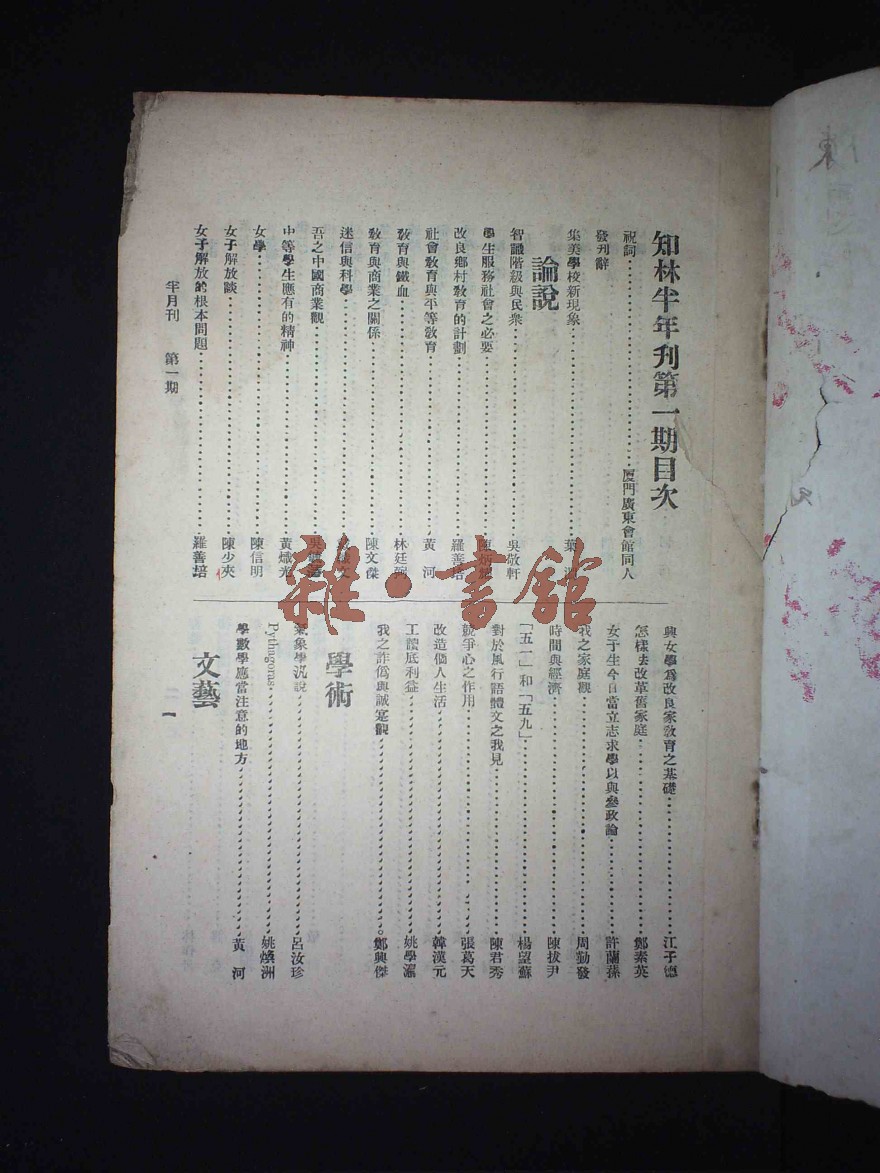 知林半年刊第一期目次
祝詞……厦門廣東會館同人
發刊辭
集美學校新現象……葉
論說
智識階級與民衆……吳敬軒
學生服務社會之必要……陳
改良鄉村敎育的計劃……羅善培
社會敎育與平等敎育……黃 河
敎育與鐵血……林廷弼
敎育與商業之關係……陳文傑
迷信與科學……
吾之中國商業觀……吳
中等學生應有的精神……黃熾光
女學……陳信明
女子解放談……陳少夾
女子解放的根本問題……羅善培
半月刊 第一期
興女學爲改良家敎育之基礎……江子德
怎樣去改革舊家庭……鄭素英
女子生今日當立志求學以與參政論……許蘭蓀
我之家庭觀……周勤發
時間與經濟……陳拔尹
「五一」和「五九」……楊望蘇
對於風行語體文之我見……陳君秀
競爭心之作用……張葛天
改造個人生活……韓漢元
工讀底利益……姚學瀛
我之詐僞與誠寔觀……鄭興傑
學術
氣象學汎說……呂汝珍
Pythagoras……姚煥洲
學數學應當注意的地方……黃 河
文藝
一
雜·書館